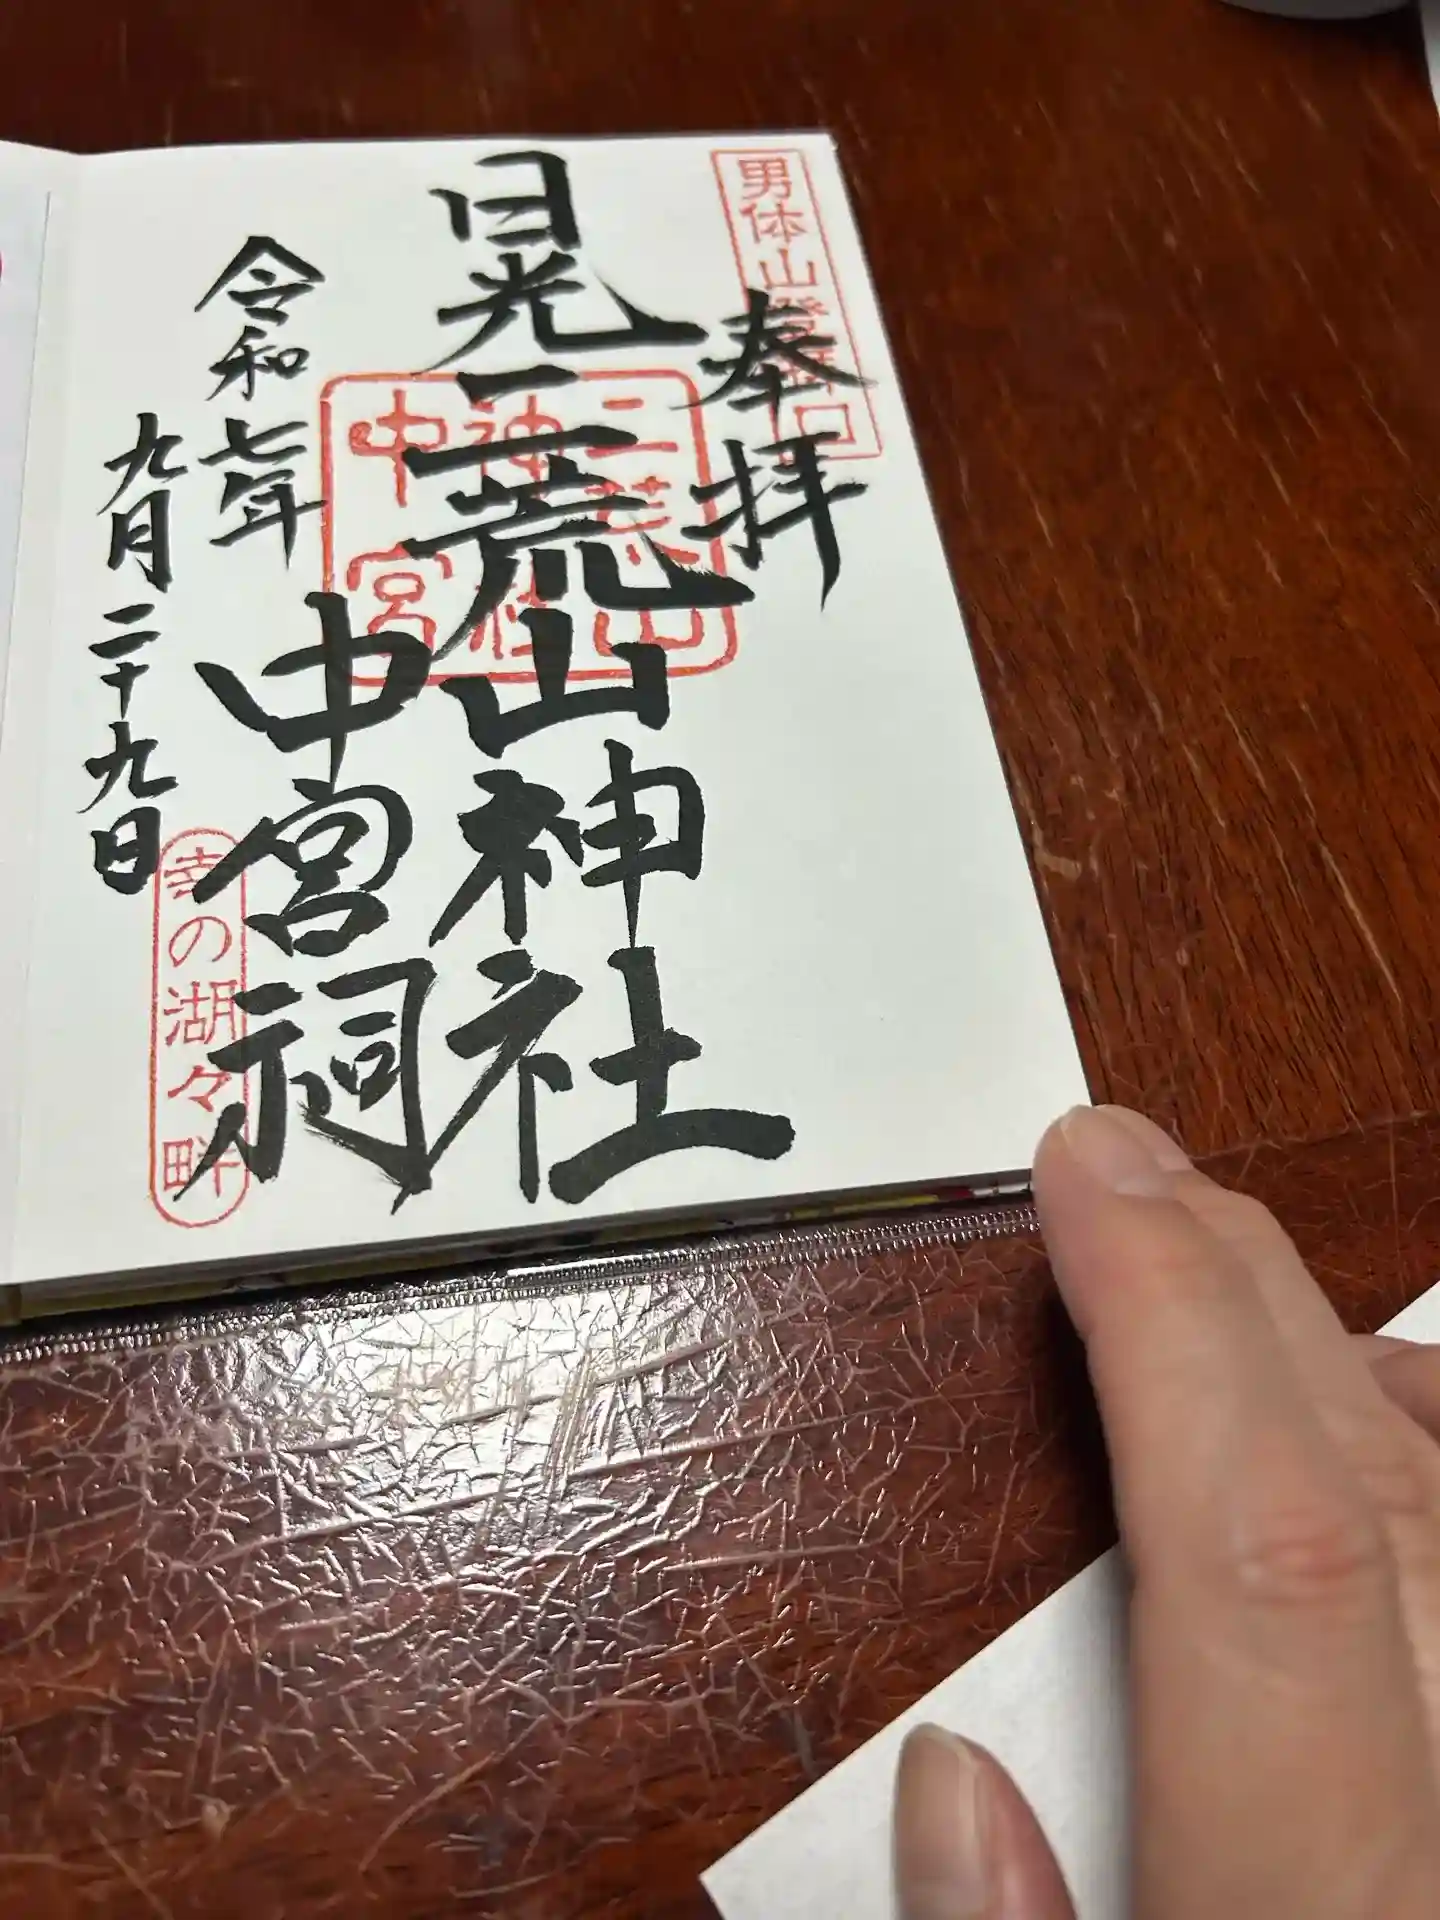 男体山登拝口
奉拝
日光二荒山神社
中宮祠
二荒山
神社
中宮
令和七年
九月二十九日
幸の湖々畔